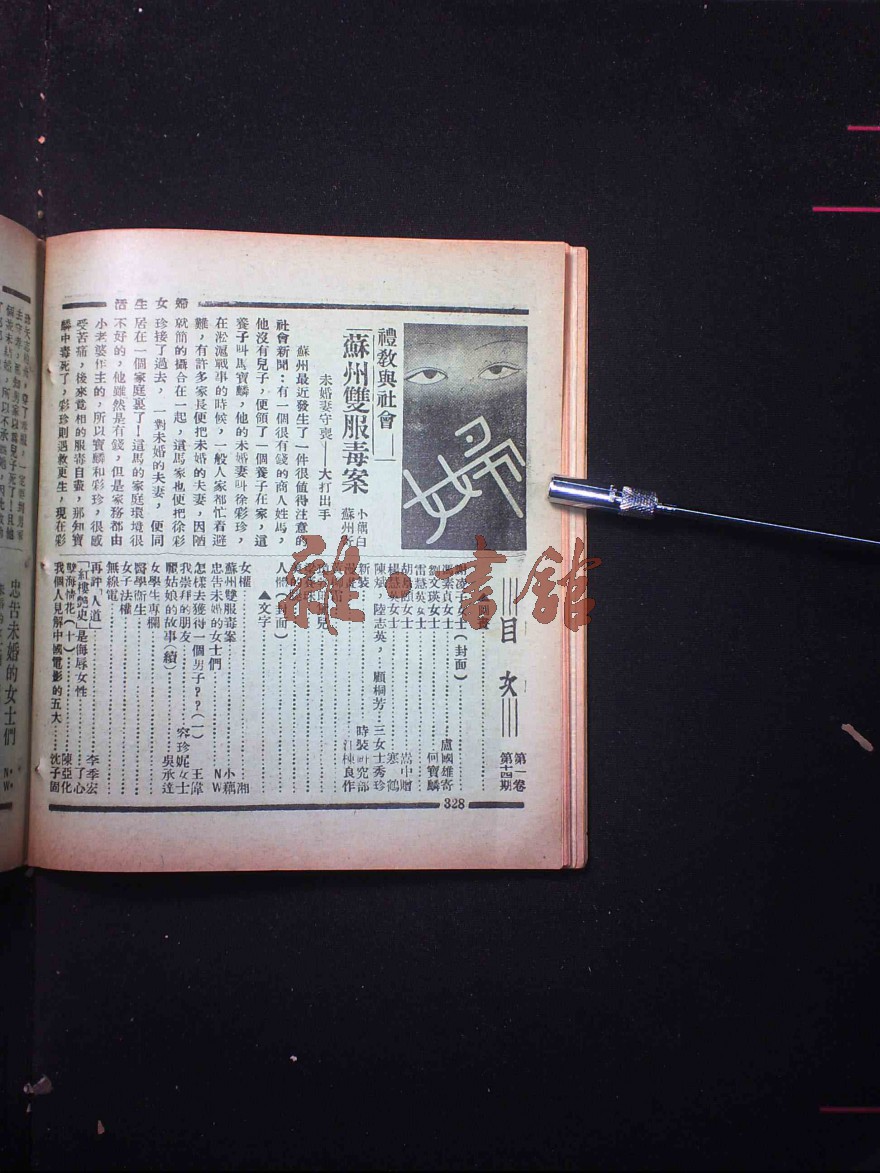 婦女生活
婦
禮教與社會——
「蘇州雙服毒案
小藕白
蘇州近
未婚妻守喪——大打出手
蘇州最近發生了一件很値得注意的
社會新聞：有一個很有錢的商人姓馬，
他沒有兒子，便領了一個養子在家，這
養子叫馬寶麟，他的未婚妻叫徐彩珍，
在淞滬戰事的時候，一般人家都忙着避
難，有許多家長便把未婚的夫妻，因陋
就簡的攝合在一起，這馬家也便把徐彩
珍接了過去，一對未婚的夫妻，便同
居在一個家庭裏了！這馬的家庭環境很
不好的，他雖然是有錢，但是家務都由
小老婆作主的，所以寶麟和彩珍，很感
受苦痛，後來竟相約服毒自盡，那知寶
麟中毒死了，彩珍則遇救更生，現在彩
目次
第一卷
第十四期
▲圖畫
女士（封面）
素貞女士 盧國雄寄
劉文瑛女士 何寶麟
雷慧英女士
女士 中贈
楊慧英女士 寒鶴
陳斌，陸志英，顧桐芳…三女士秀珍
新裝 時裝研究部
棟良作
人體（封面）
▲文字
女權 湘
蘇州雙服毒案 小藕
忠告未婚的女士們 NW
怎樣去獲得一個男子？？（一） 王偉
我崇拜的朋友 容珍妮女士
願姑娘的故事（續） 吳承達
女學生專欄
醫學衞生
女子法權
無線電
再評「人道」 李季宏
「紅樓艷史」是侮辱女性 了心
孽海情花（十） 陳亞化
我個人見解中國電影的五大 沈子固
328
忠告未婚的女士們
N．W．
雅書館